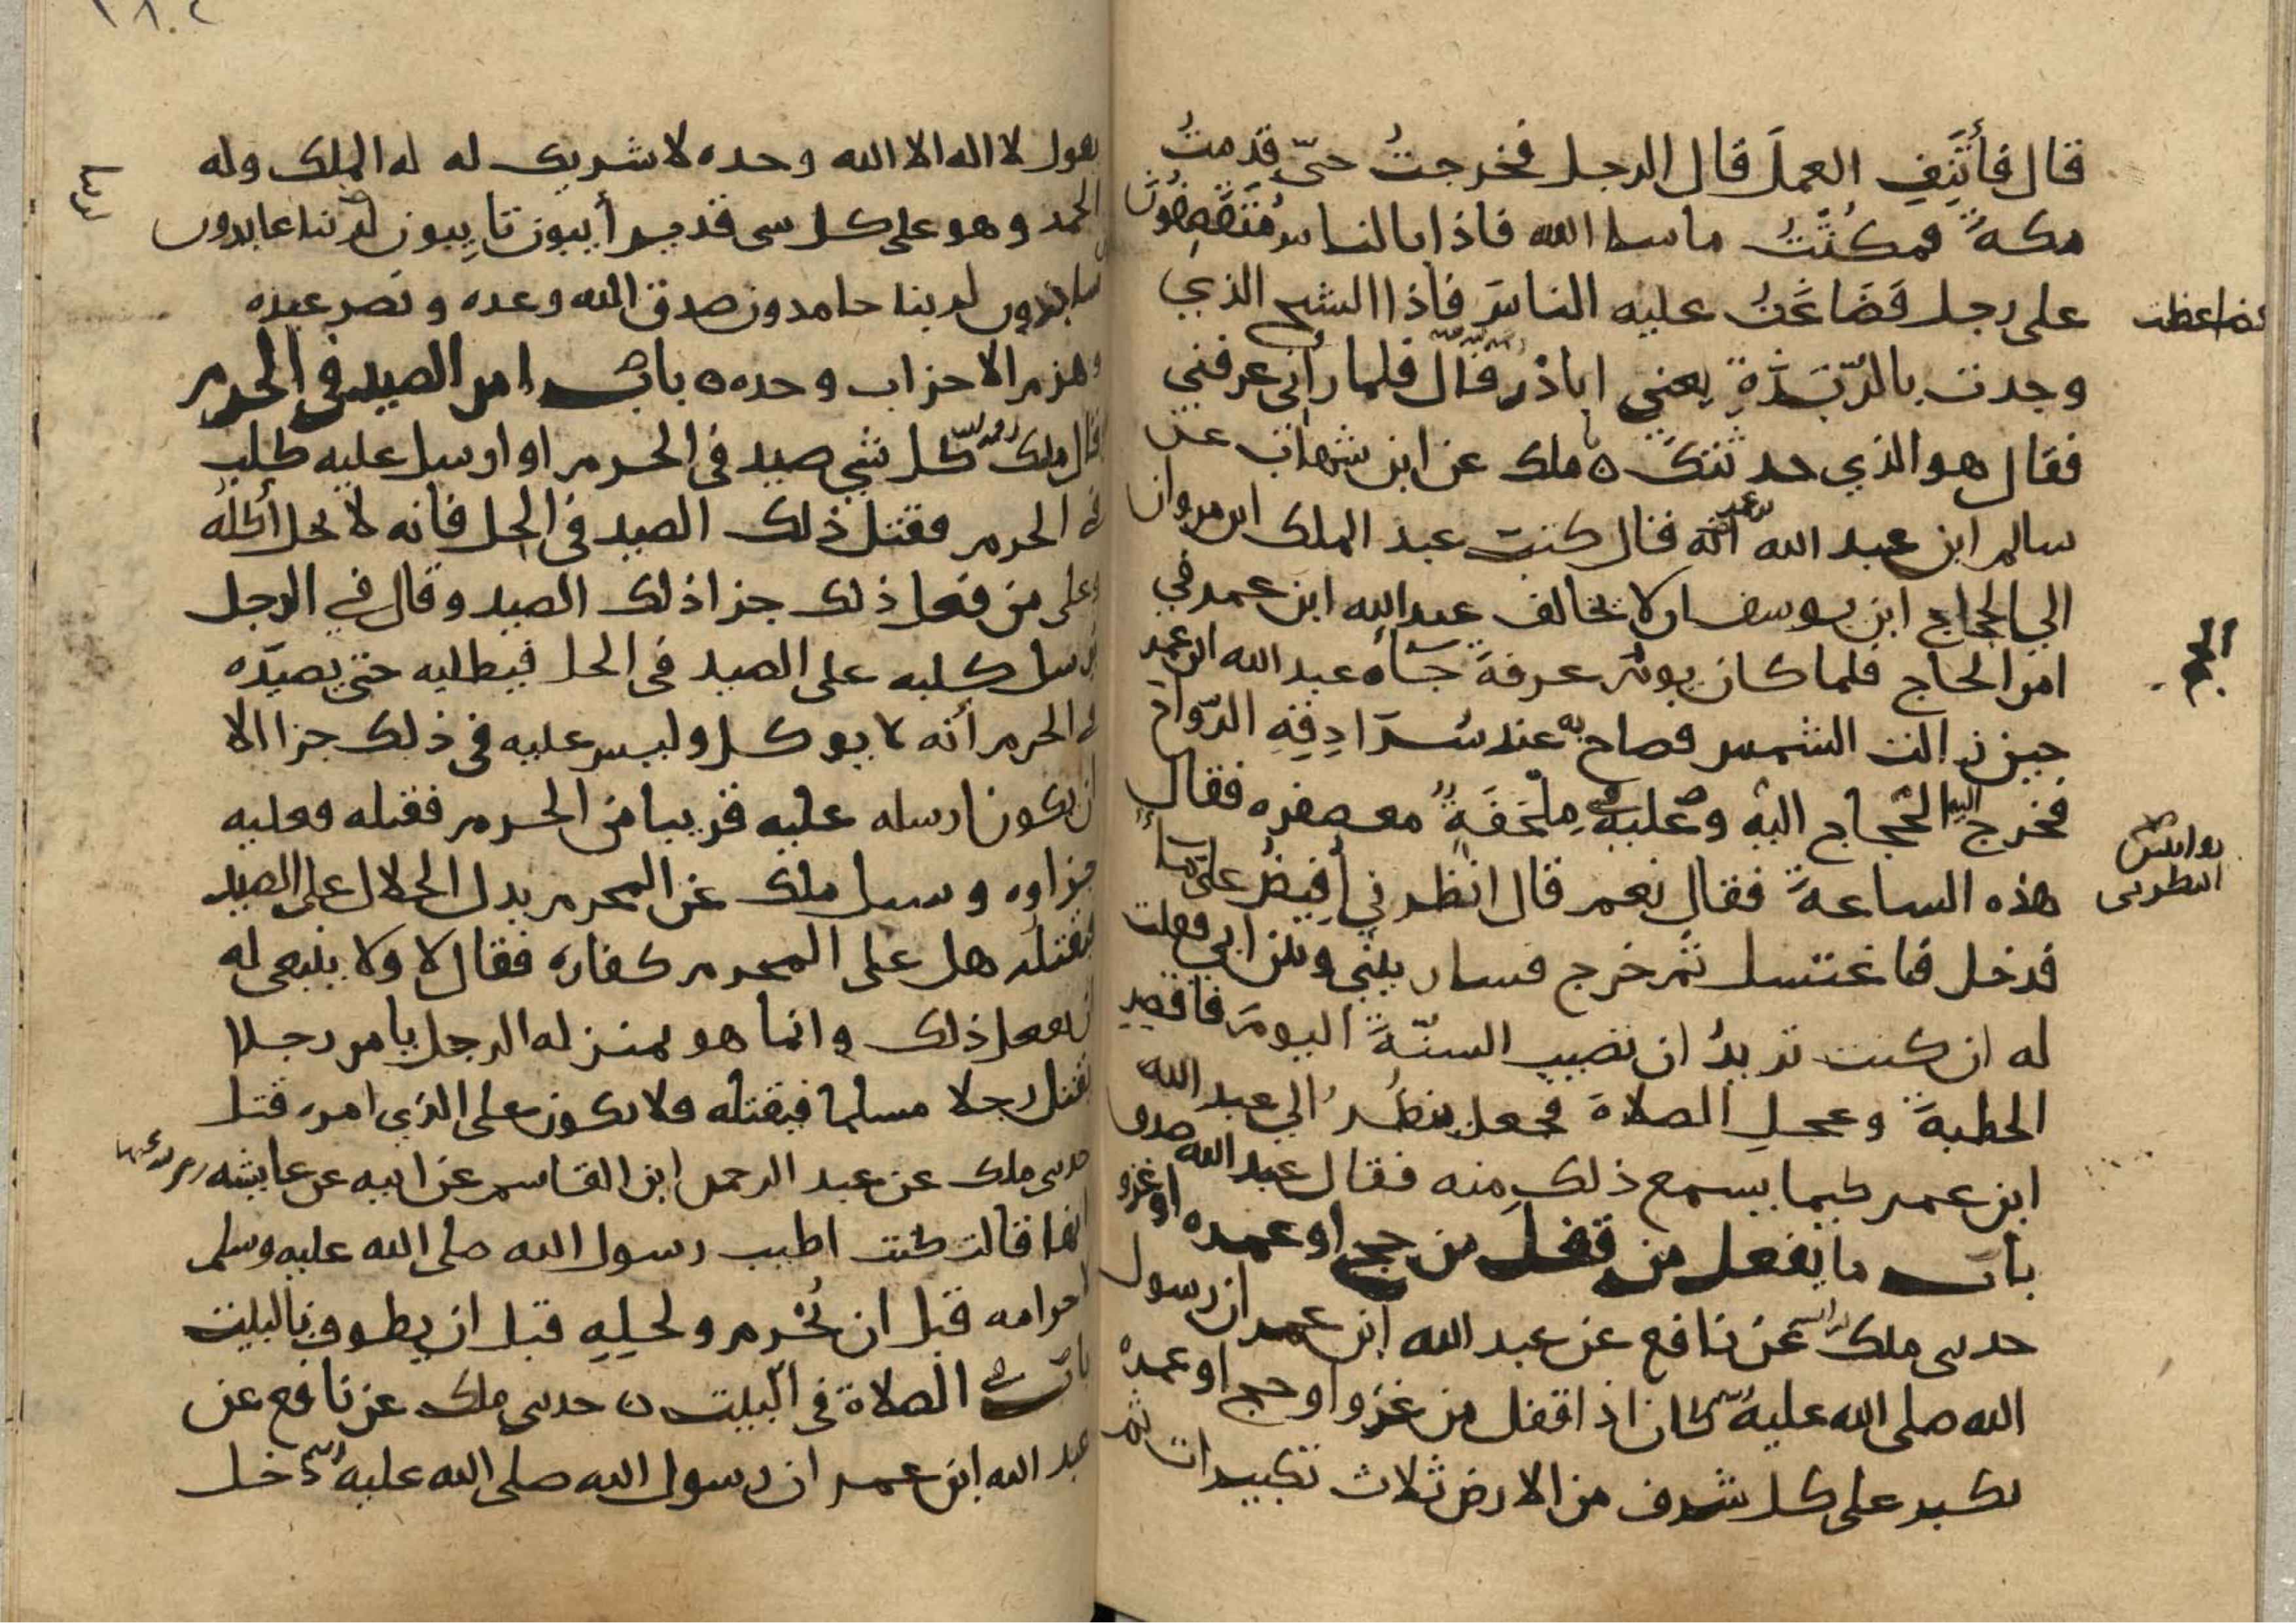 قال فأتنف العمل قال الرجل فخرجت حتى قدمت
مكة فمكثت ما سا الله فاذا بالناس منقصفون
على رجل فضاغت عليه الناس فاذا الشيخ الذي
ضاعطت
وجدت بالربذة يعني اباذر قال فلما رأني عرفني
فقال هو الذي حدثتك ه ملك عن ابن شهاب عن
سالم ابن عبد الله أنه قال كتب عبد الملك ابن مروان
الي الحجاج ابن يوسف ان لا تخالف عبد الله ابن عمر في
امر الحاج فلما كان يوم عرفة جاه عبد الله ابن عمر
الحج
حين زالت الشمس فصاح به عند سرادقه الرواح
فخرج اليه الحجاج اليه وعليه ملحفة معصفره فقال
هذه الساعة فقال نعم قال انظرني أفيض علي ماء
فدخل فاغتسل ثم خرج فسار بيني وبين ابي فقلت
له ان كنت تريد ان تصيب السنة اليوم فاقصر
الخطبة وعجل الصلاة فجعل ينظر الي عبد الله
ابن عمر كيما يسمع ذلك منه فقال عبد الله صدق
باب ما يفعل من قفل من حج او عمره او غزو
حدثني ملك عن نافع عن عبد الله ابن عمر ان رسول
الله صلى الله عليه كان اذا قفل من غزو او حج او عمرة
يكبر على كل شرف من الارض ثلاث تكبيرات ثم
يقول لا اله الا الله وحده لا شريك له له الملك وله
الحمد وهو على كل سى قدير أيبون تايبون لربنا عابدون
ساجدون لربنا حامدون صدق الله وعده ونصر عبده
وهزم الاحزاب وحده ه باب امر الصيد في الحرم
قال ملك كل شي صيد في الحرم او ارسل عليه كلب
في الحرم فقتل ذلك الصيد في الحل فانه لا يحل أكله
وعلى من فعل ذلك جزا ذلك الصيد وقال في الرجل
يرسل كلبه على الصيد في الحل فيطلبه حتى يصيده
في الحرم أنه لا يوكل وليس عليه في ذلك جزا الا
ان يكون ارسله عليه قريبا من الحرم فقتله فعليه
جزاوه وسيل ملك عن المحرم يدل الحلال على الصيد
فيقتله هل على المحرم كفاره فقال لا ولا ينبغي له
ان يفعل ذلك وانما هو بمنزله الرجل يامر رجلا
يقتل رجلا مسلما فيقتله فلا يكون على الذي امره قتل
حدثني ملك عن عبد الرحمن ابن القاسم عن ابيه عن عايشه
انها قالت كنت اطيب رسول الله صلى الله عليه وسلم
لاحرامه قبل ان يحرم ولحله قبل ان يطوف بالبيت
باب الصلاة في البيت ه حدثني ملك عن نافع عن
عبد الله ابن عمر ان رسول الله صلى الله عليه دخل